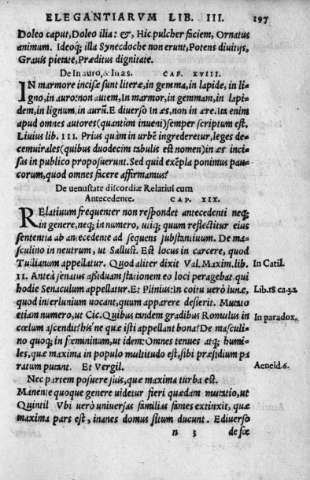 ELEGANTIARVM LIB. III. 197
Doleo caput, Doleo ilia: &, Hic pulcher faciem, Ornatus
animam. Ideoq; illa Synecdoche non erunt, Potens diuitijs,
Grauis pietate, Præditus dignitate.
De In auro, & In æs. CAP. XVIII.
IN marmore incisæ sunt literæ, in gemma, in lapide, in li-
gno, in auro: non autem, In marmor, in gemmam, in lapi-
dem, in lignum, in aurũ. E diuerso in æs, non in ære. Ita enim
apud omnes autores (quantum inueni) semper scriptum est.
Liuius lib. III. Prius quàm in vrbẽ ingrederetur, leges de-
cemuirales (quibus duodecim tabulis est nomen) in æs inci-
sas in publico proposuerunt. Sed quid exẽpla ponimus pau-
corum, quod omnes ficere affirmamus?
De uenustate discordiæ Relatiui cum
Antecedente. CAP. XIX.
RElatiuum frequenter non respondet antecedenti neq;
in genere, neq; in numero, uiq; quum reflectitur eius
sententia ab antecedente ad sequens substantiuum. De ma-
sculino in neutrum, ut Sallust. Est locus in carcere, quod
Tullianum appellatur. Quod aliter dixit Val. Maxim. lib. In Catil.
II. Antea senatus assiduam stationem eo loci peragebat. qui
hodie Senaculum appellatur. Et Plinius: In coitu verò lunæ, Lib. 18 ca. 32.
quod interlunium uocant, quum apparere desierit. Mutatio
etiam numero, ut Cic. Quibus tandem gradibus Romulus in In paradox.
cœlum ascendit? hisne quæ isti appellant bona? De masculi-
no quoq; in fœmininum, ut idem: Omnes tenues atq; humi-
les, quæ maxima in populo multitudo est, sibi præsidium pa
ratum putant. Et Vergil. Aeneid. 6.
Nec partem posuere suis, quæ maxima turba est.
Manente quoque genere uidetur fieri quædam mutatio, ut
Quintil Vbi verò uniuersas familias funes extinxit, quæ
maxima pars est, inanes domus situm ducunt. E diuerso
n 3 de fœ